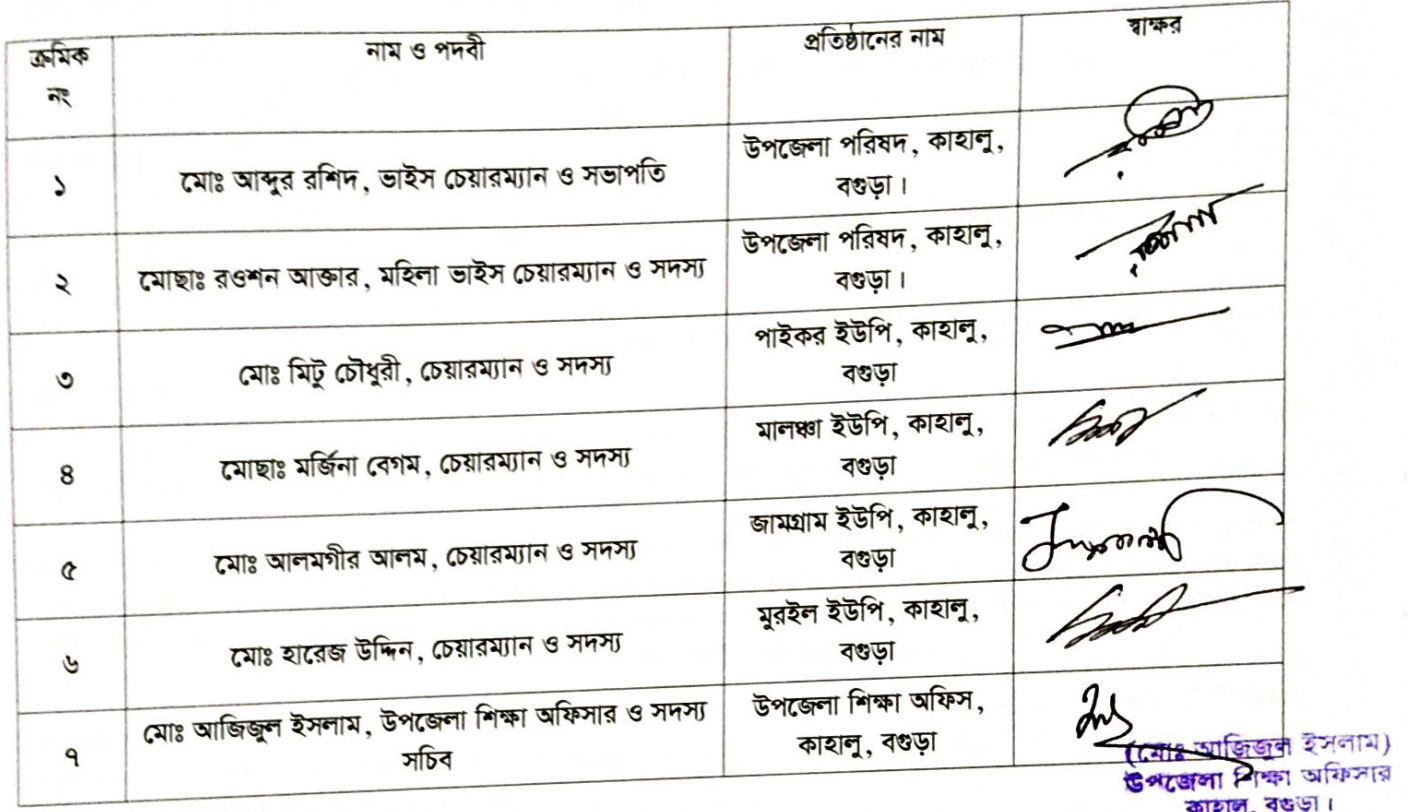 ক্রমিক নং | নাম ও পদবী | প্রতিষ্ঠানের নাম | স্বাক্ষর
১ | মোঃ আব্দুর রশিদ, ভাইস চেয়ারম্যান ও সভাপতি | উপজেলা পরিষদ, কাহালু, বগুড়া।
২ | মোছাঃ রওশন আক্তার, মহিলা ভাইস চেয়ারম্যান ও সদস্য | উপজেলা পরিষদ, কাহালু, বগুড়া।
৩ | মোঃ মিটু চৌধুরী, চেয়ারম্যান ও সদস্য | পাইকর ইউপি, কাহালু, বগুড়া
৪ | মোছাঃ মর্জিনা বেগম, চেয়ারম্যান ও সদস্য | মালঞ্চা ইউপি, কাহালু, বগুড়া
৫ | মোঃ আলমগীর আলম, চেয়ারম্যান ও সদস্য | জামগ্রাম ইউপি, কাহালু, বগুড়া
৬ | মোঃ হারেজ উদ্দিন, চেয়ারম্যান ও সদস্য | মুরইল ইউপি, কাহালু, বগুড়া
৭ | মোঃ আজিজুল ইসলাম, উপজেলা শিক্ষা অফিসার ও সদস্য সচিব | উপজেলা শিক্ষা অফিস, কাহালু, বগুড়া
(মোঃ আজিজুল ইসলাম)
উপজেলা শিক্ষা অফিসার
কাহালু, বগুড়া।